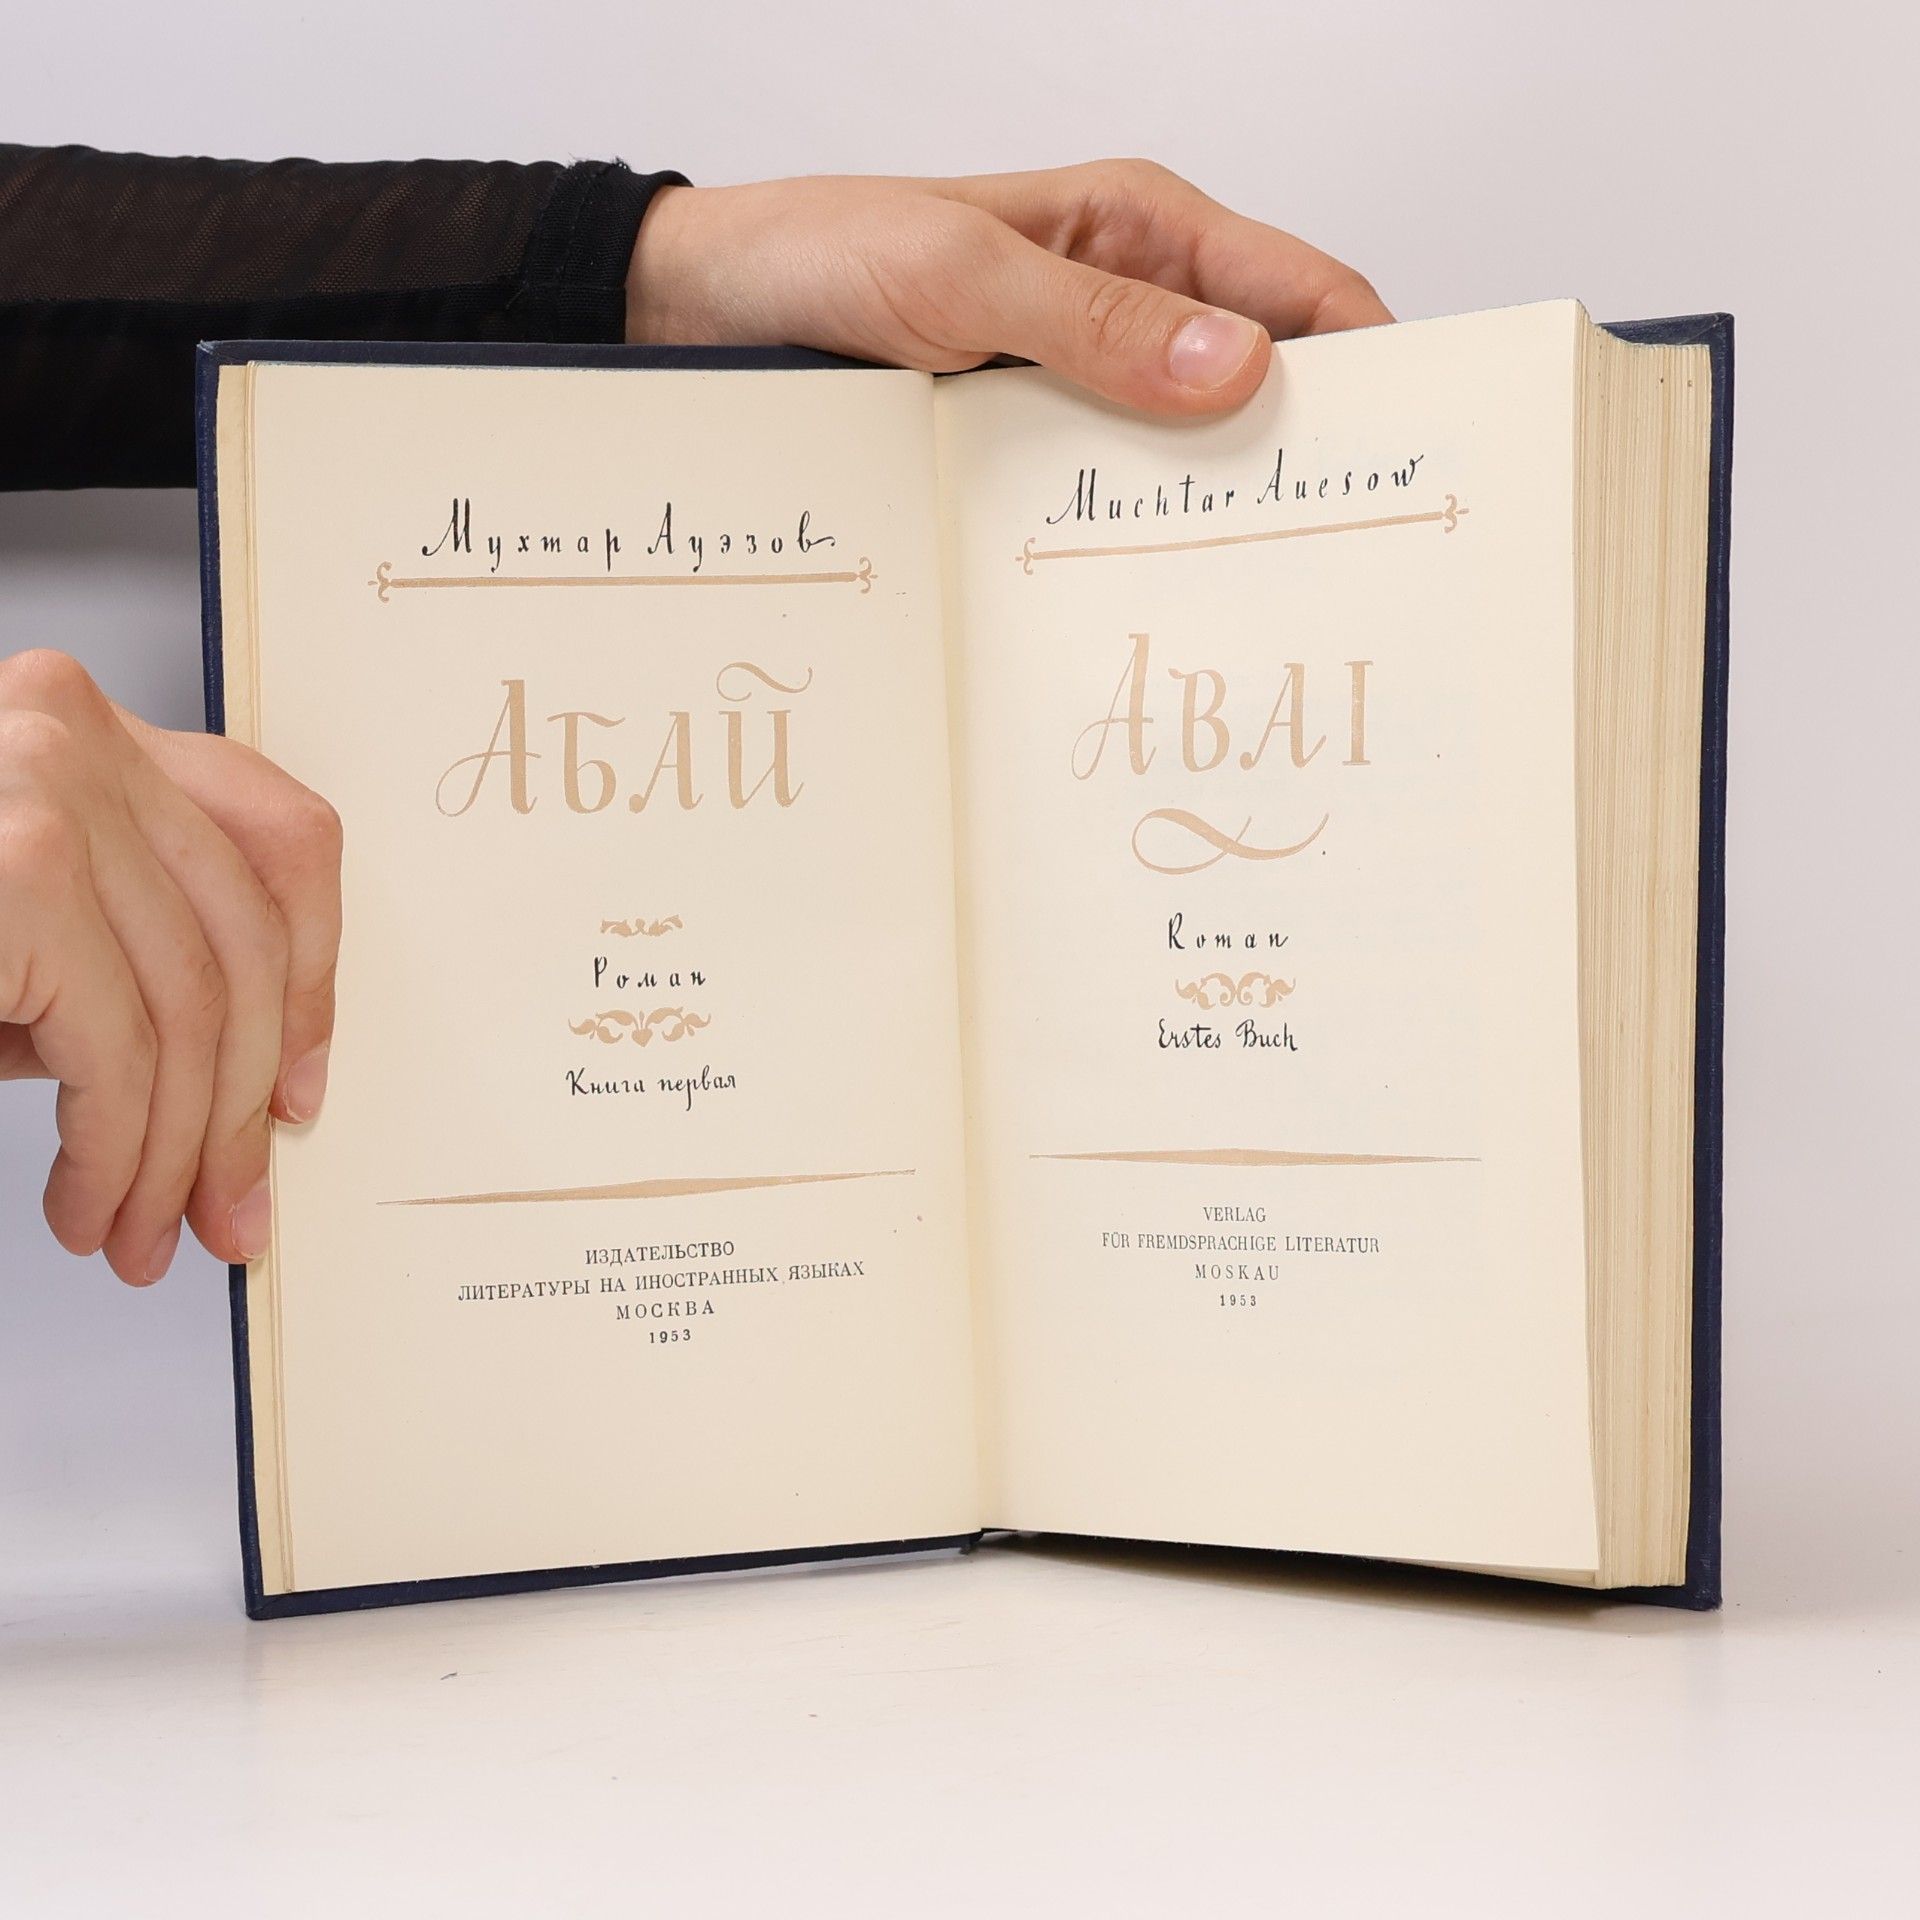 Мухтар Ауэзов
АБАЙ
Роман
Книга первая
ИЗДАТЕЛЬСТВО
ЛИТЕРАТУРЫ НА ИНОСТРАННЫХ ЯЗЫКАХ
МОСКВА
1953
Muchtar Auesow
ABAI
Roman
Erstes Buch
VERLAG
FÜR FREMDSPRACHIGE LITERATUR
MOSKAU
1953